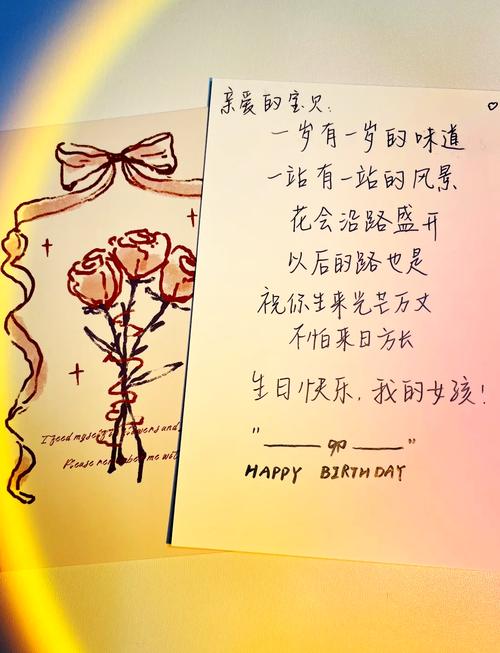 亲爱的宝贝:
一岁有一岁的味道
一站有一站的风景
花会沿路盛开
以后的路也是
祝你生来光芒万丈
不怕来日方长
生日快乐,我的女孩!
HAPPY BIRTHDAY
Please me